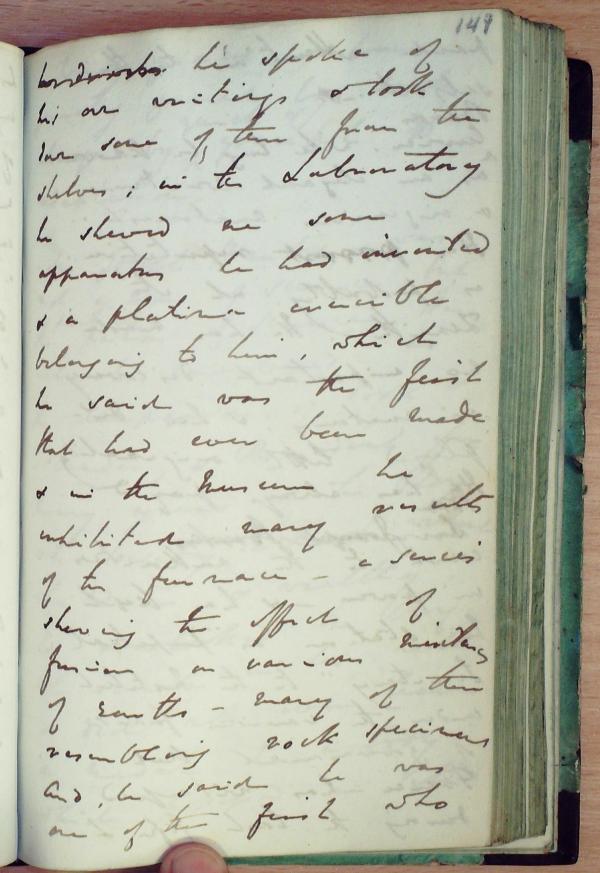 149
he spoke of
his own writings & took
down some of them from the
shelves; in the Laboratory
he shewed me some
apparatus he had invented
& a platina crucible
belonging to him, which
he said was the first
that had ever been made
& in the Museum he
exhibited many results
of the furnace - a series
shewing the effect of
fusion on various mixtures
of Earths - many of them
resembling rock specimens
and, he said he was
one of the first who